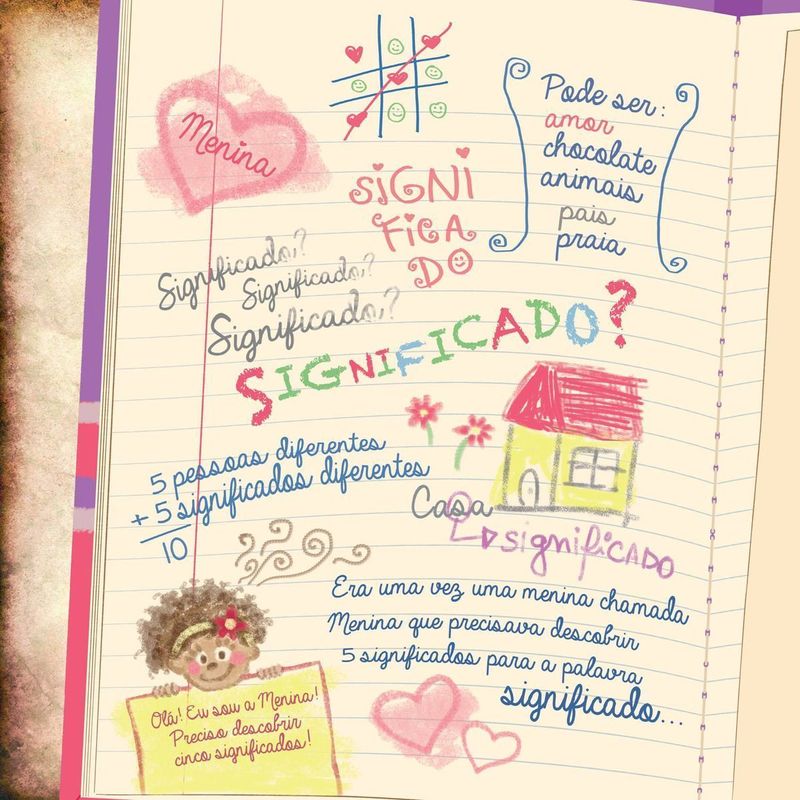 Menina
Pode ser:
amor
chocolate
animais
pais
praia
SiGNi
FiCA
DO
Significado?
Significado?
Significado?
SIGNIFICADO?
5 pessoas diferentes
+ 5 significados diferentes
10
Casa
significado
Era uma vez uma menina chamada
Menina que precisava descobrir
5 significados para a palavra
significado...
Olá! Eu sou a Menina!
Preciso descobrir
cinco significados!